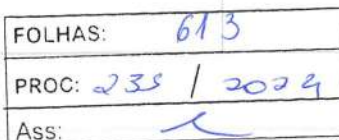 FOLHAS: 613
PROC: 235 / 2024
Ass: